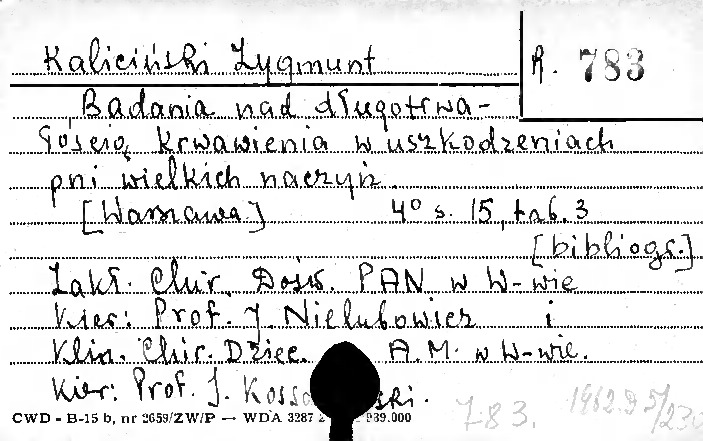 Kaliciński Zygmunt
R. 783
Badania nad długotrwa-
łością krwawienia w uszkodzeniach
pni wielkich naczyń.
[Warszawa] 4° s. 15, tab. 3
[bibliogr.]
Zakł. Chir. Dośw. PAN w W-wie
Kier: Prof. J. Nielubowicz i
Klin. Chir. Dziec. A.M. w W-wie.
Kier: Prof. J.
CWD - B-15 b, nr 2659/ZW/P — WDA 3287
783.